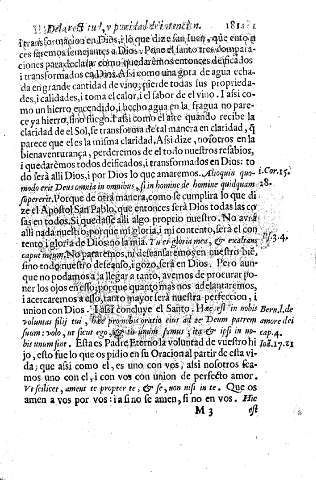 De la rectitud, y puridad de intencion. 181
i transformacion en Dios, i lo que dize san Iuan, que enton
ces seremos semejantes a Dios. Pone el santo tres compara
ciones para declarar como quedaremos entonces deificados
i transformados en Dios. Asi como una gota de agua echa-
da en grande cantidad de vino, pierde todas sus proprieda-
des, i calidades, i toma el calor, i el sabor de el vino. I asi co-
mo un hierro encendido, i hecho agua en la fragua no pare-
ce ya hierro, sino fuego. I asi como el aire quando recibe la
claridad de el Sol, se transforma de tal manera en claridad, q̃
parece que el es la misma claridad. Asi dize, nosotros en la
bienaventurança, perderemos de el todo nuestros resabios,
i quedarémos todos deificados, i transformados en Dios: to
do serà alli Dios, i por Dios lo que amaremos. Alioquin quo-
modo erit Deus omnia in omnibus, si in homine de homine quidquam
supererit. Porque de otra manera, como se cumplira lo que di
ze el Apostol San Pablo, que entonces serà Dios todas las co
sas en todos. Si quedasse alli algo proprio nuestro. No avrà
alli nada nuestro; porque mi gloria, i mi contento, serà el con
tento i gloria de Dios no la mia. Tu es gloria mea, & exaltans
caput meum. No pararemos, ni descansaremos en nuestro bie,
sino todo nuestro descanso, i gozo, serà en Dios. Pero aun-
que no podamos acà llegar a tanto, avemos de procurar po-
ner los ojos en esso; porque quanto mas nos adelantaremos,
i acercaremos a esso, tanto mayor serà nuestra perfeccion, i
union con Dios. I asi concluye el Santo. Hæc est in nobis
voluntas filij tui, hæc pro nobis oratio eius ad te Deum patrem
suum: volo, ut sicut ego & tu unum sumus; ita & ipsi in no-
bis unum sint. Esta es Padre Eterno la voluntad de vuestro hi
jo, esto fue lo que os pidio en su Oracion al partir de esta vi-
da; que asi como el, es uno con vos; alsi nosotros sea-
mos uno con el, i con vos con union de perfecto amor.
Vt scilicet, ament te propter te, & se, non nisi in te. Que os
amen a vos por vos: i a si no se amen, si no en vos. Hic
M 3 est
1. Cor. 15.
28.
Ps. 3. 4.
Bern. l. de
amore dei
cap. 4.
Ioā. 17. 21